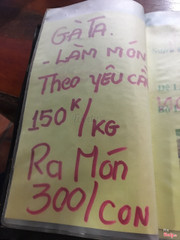 GÀ TA.
- LÀM MÓN
Theo YÊU CẦ
150K/KG
Ra Món
300/CON